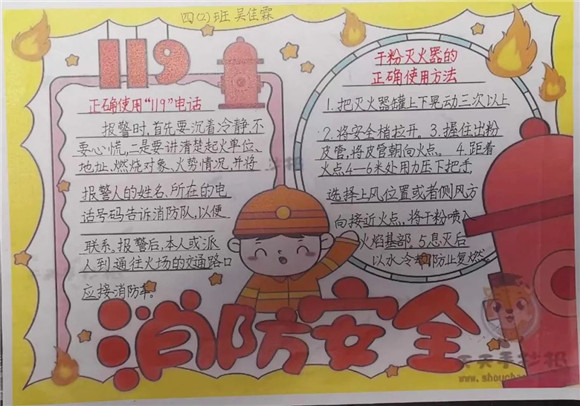 四(2)班 吴佳霖
119
正确使用"119"电话
报警时,首先要沉着冷静,不
要心慌,二是要讲清楚起火单位、
地址、燃烧对象、火势情况,并将
报警人的姓名、所在的电
话号码告诉消防队,以便
联系。报警后,本人或派
人到通往火场的交通路口
应接消防车。
干粉灭火器的
正确使用方法
1.把灭火器罐上下晃动三次以上
2.将安全梢拉开。3.握住出粉
皮管,将皮管朝向火点。4.距着
火点4—6米处用力压下把手,
选择上风位置或者侧风方
向接近火点,将干粉喷入
火焰基部。5.息灭后
以水冷却防止复燃
消防安全
天天手抄报
www.shouchao